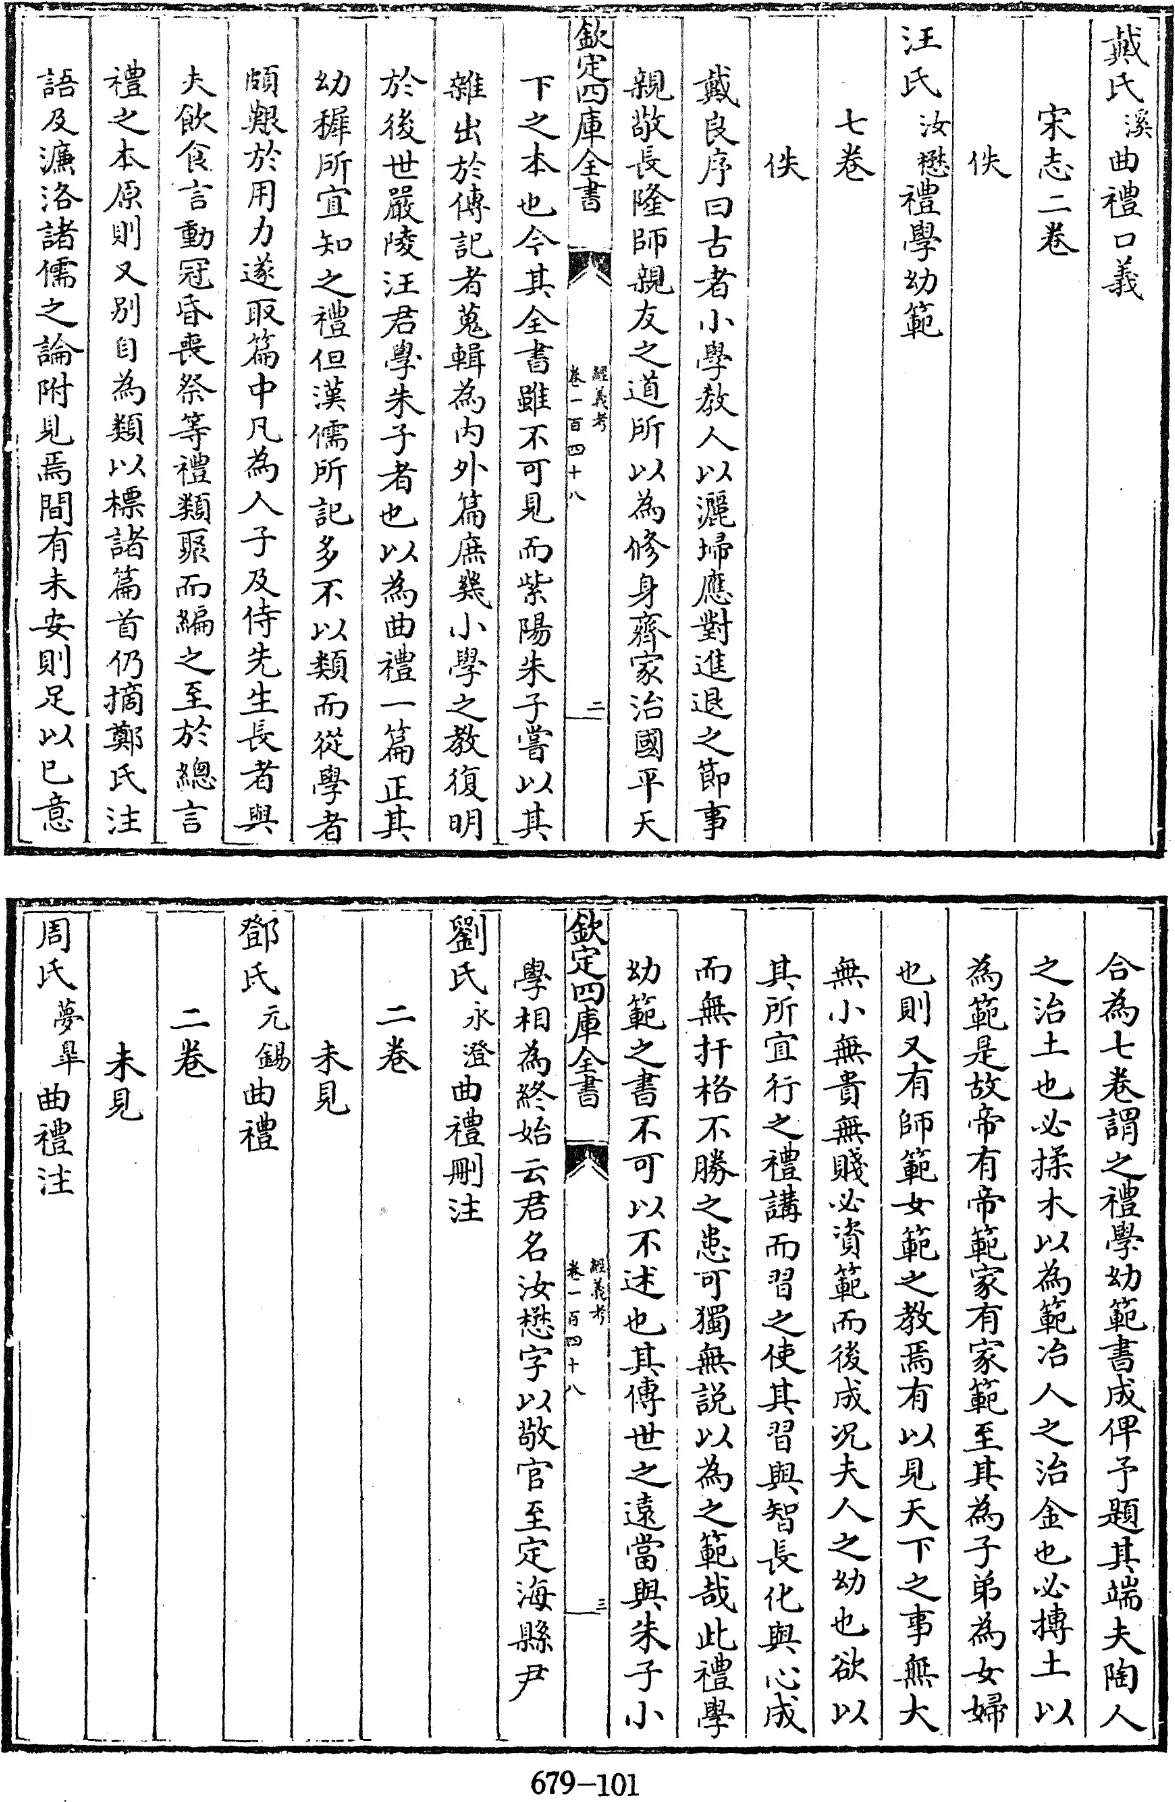 戴氏溪曲禮口義
宋志二卷
佚
汪氏汝懋禮學幼範
七卷
佚
戴良序曰古者小學教人以灑埽應對進退之節事
親敬長隆師親友之道所以為修身齊家治國平天
欽定四庫全書
經義考
卷一百四十八
二
下之本也今其全書雖不可見而紫陽朱子嘗以其
雜出於傳記者蒐輯為内外篇庶幾小學之教復明
於後世嚴陵汪君學朱子者也以為曲禮一篇正其
幼穉所宜知之禮但漢儒所記多不以類而從學者
頗艱於用力遂取篇中凡為人子及侍先生長者與
夫飲食言動冠昏喪祭等禮類聚而編之至於總言
禮之本原則又别自為類以標諸篇首仍摘鄭氏注
語及濂洛諸儒之論附見焉間有未安則足以已意
合為七卷謂之禮學幼範書成俾予題其端夫陶人
之治土也必揉木以為範冶人之治金也必摶土以
為範是故帝有帝範家有家範至其為子弟為女婦
也則又有師範女範之教焉有以見天下之事無大
無小無貴無賤必資範而後成况夫人之幼也欲以
其所宜行之禮講而習之使其習與智長化與心成
而無扞格不勝之患可獨無説以為之範哉此禮學
幼範之書不可以不述也其傳世之遠當與朱子小
欽定四庫全書
經義考
卷一百四十八
三
學相為終始云君名汝懋字以敬官至定海縣尹
劉氏永澄曲禮刪注
二卷
未見
鄧氏元錫曲禮
二卷
未見
周氏夢臯曲禮注
679-101